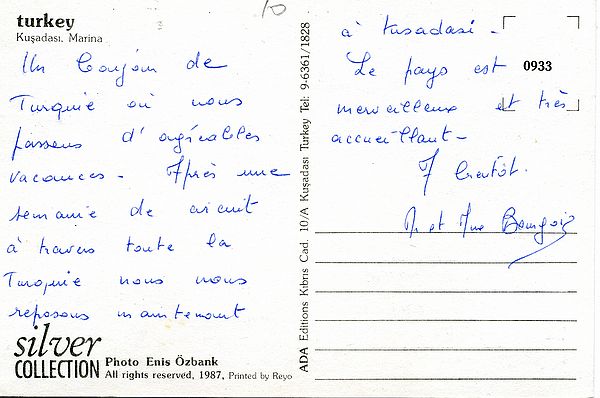 turkey
Kuşadası. Marina
Un Bonjour de
Turquie où nous
passons d'agréables
vacances - Après une
semanie de circuit
à travers toute la
Turquie nous nous
reposons maintenant
silver
COLLECTION
Photo Enis Özbank
All rights reserved, 1987, Printed by Reyo
ADA Editions Kıbrıs Cad. 10/A Kuşadası Turkey Tel: 9-6361/1828
10
à Kusadasi -
Le pays est
0933
merveilleux et très
accueillant -
A bientôt.
Mr et Mme